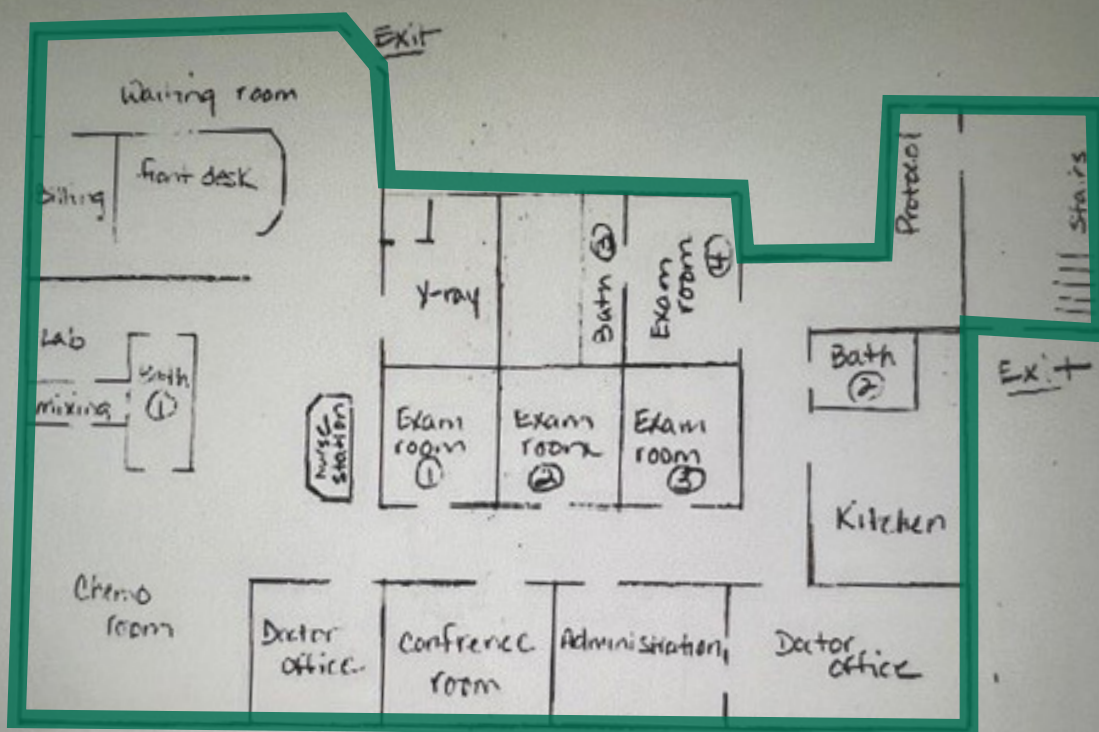 Exit
Waiting room
Billing
front desk
Protocol
Stairs
Y-ray
Bath ③
Exam
room ④
Lab
mixing
Bath
①
Bath
②
Exit
nurse
station
Exam
room
①
Exam
room
②
Exam
room
③
Kitchen
Chemo
room
Doctor
office
Confrence
room
Administration
Doctor
office